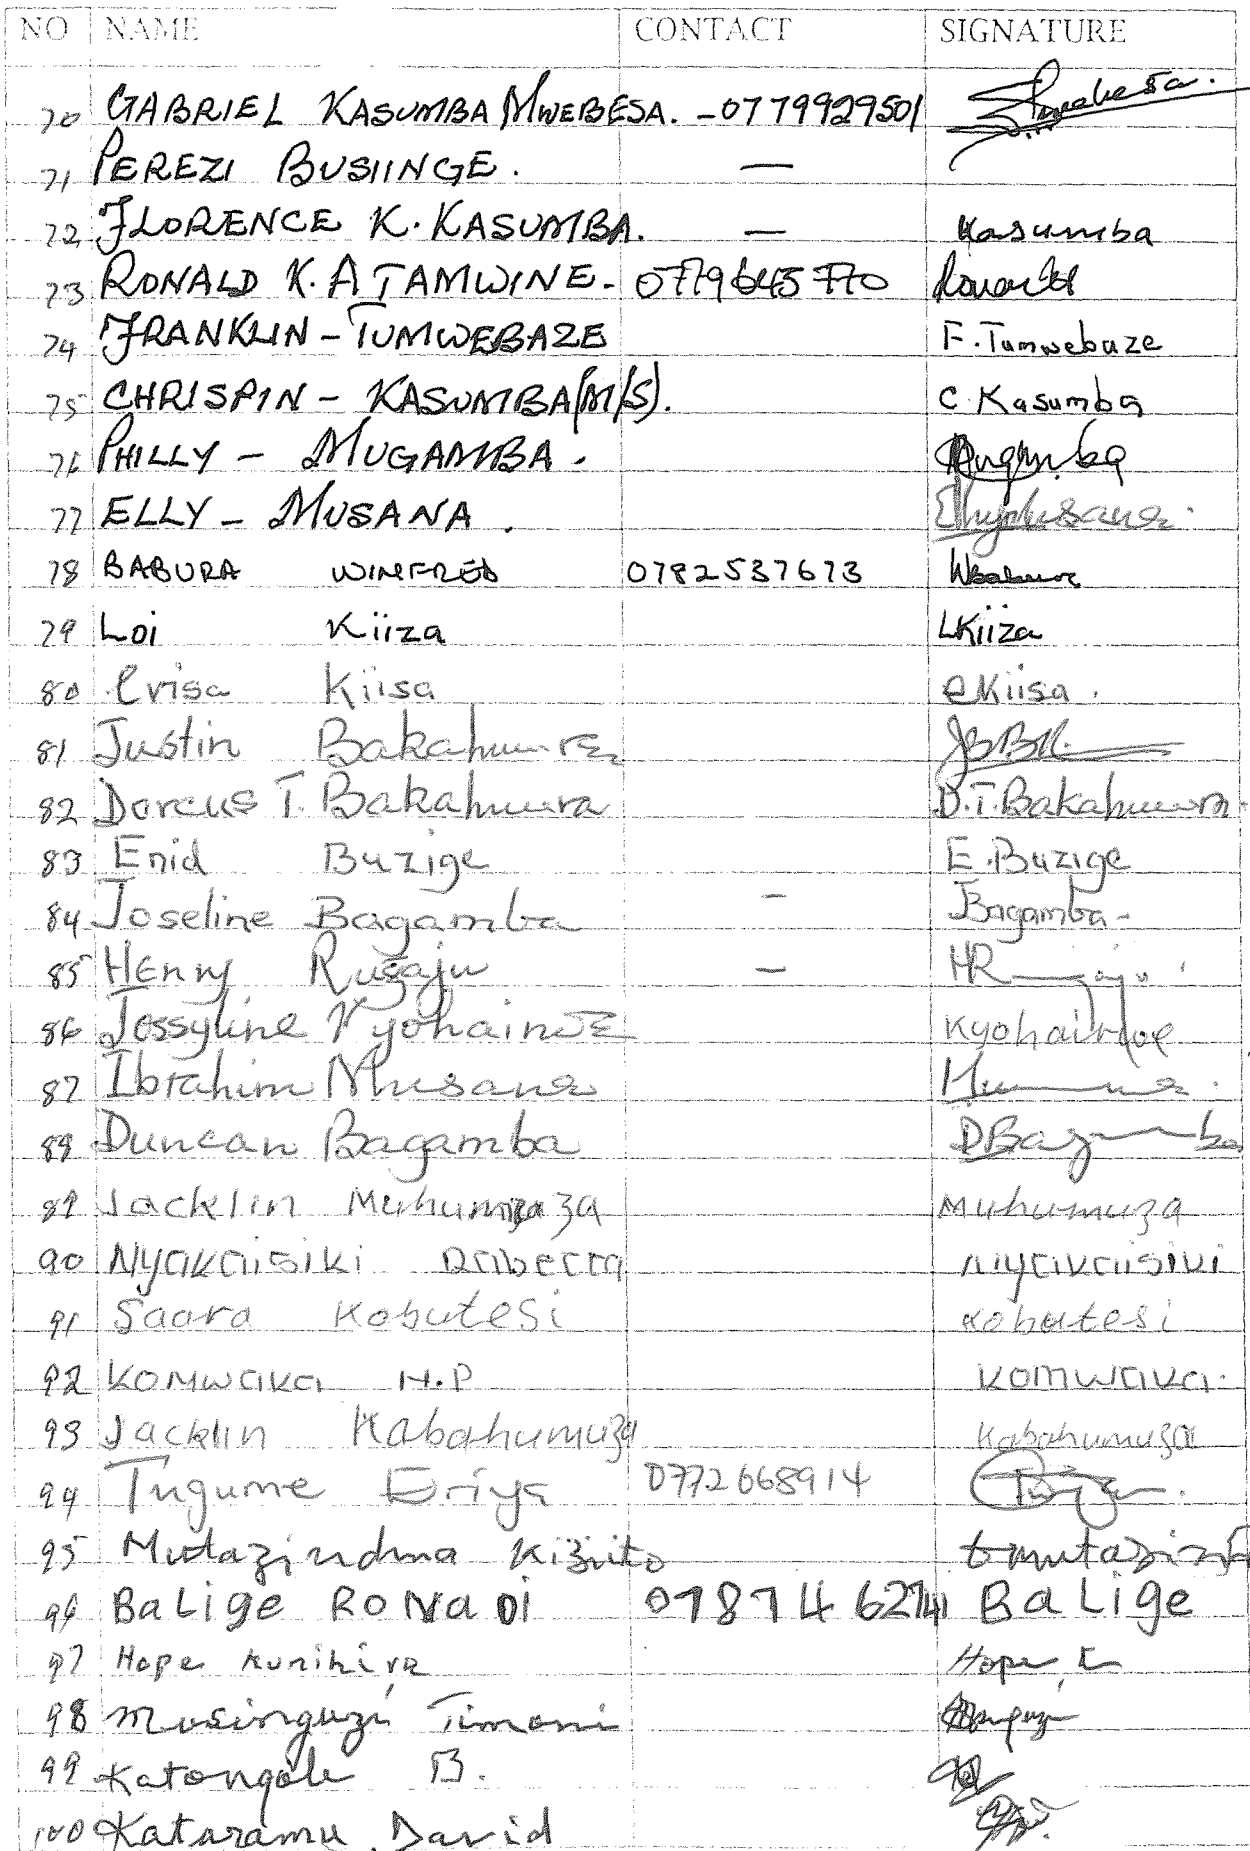 NO NAME CONTACT SIGNATURE
70 GABRIEL KASUMBA MWEBESA. - 0779929501
71 PEREZI BUSIINGE. —
72 FLORENCE K. KASUMBA. — Kasumba
73 RONALD K. ATAMWINE - 0779645770
74 FRANKLIN - TUMWEBAZE F. Tumwebaze
75 CHRISPIN - KASUMBA (M/S). C. Kasumba
76 PHILLY - MUGAMBA.
77 ELLY - MUSANA.
78 BABURA WINIFRED 0782537673
79 Loi Kiiza LKiiza
80 Erisa Kiisa eKiisa.
81 Justin
82 Dorcus T. Bakahuura D.T. Bakahuura
83 Enid Buzige E. Buzige
84 Joseline Bagamba - JBagamba -
85 Henry Rusaju —
86 Jossyline Kyohairwe Kyohairwe
87 Ibrahim Musana
88 Duncan Bagamba DBagamba
89 Jacklin Muhumuza Muhumuza
90 Nyakaisiki Nyakaisiki
91 Saara Kobutesi Kobutesi
92 Komwaka H.P Komwaka.
93 Jacklin Kabahumuza Kabahumuza
94 Tugume Eriya 0772668914
95 Kizito
96 BaLige RoNaDi BaLige
97 Hope Kunihira Hope K
98 Musinguzi Timoni
99 Katongole B.
100 Kataramu David